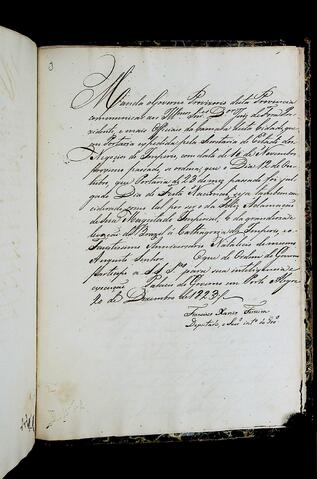 Manda o Governo Provisorio desta Provincia
communicar ao Ill.mos Sn.res D.or Juiz de Fora Pre
zidente, e mais Officiaes da Camara desta Cidade, que
em Portaria expedida pela Secretaria de Estado dos
Negocios do Imperio, com data de 14 de Novembro
proximo passado, se ordena, que o Dia 12 de Ou
tubro, que Portaria de 23 de passado foi jul
gado Dia de Festa Nacional, seja tambem con
siderado como tal por ser o da Feliz Aclamação
de Sua Magestade Imperial, e da grandioza
do Brazil a Cathegoria de Imperio, e o
Faustissimo Anniversario Natalicio do mesmo
Augusto Senhor. O que de Ordem do Governo
participo a S. S.rias para sua intelligencia, e
execução. Palacio do Governo em Porto Alegre
20 de Dezembro de 1823
Francisco Xavier Ferreira
Deputado, e Secr. int.o do Gov.o